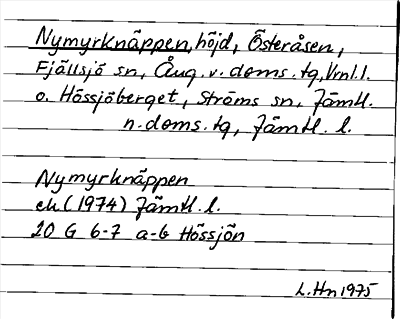 Nymyrknäppen, höjd, Österåsen,
Fjällsjö sn, Ång. v. doms. tg, Vrnl. l.
o. Hössjöberget, Ströms sn, Jämtl.
n. doms. tg, Jämtl. l.
Nymyrknäppen
ek. (1974) Jämtl. l.
20 G 6-7 a-b Hössjön
L. Hn 1975